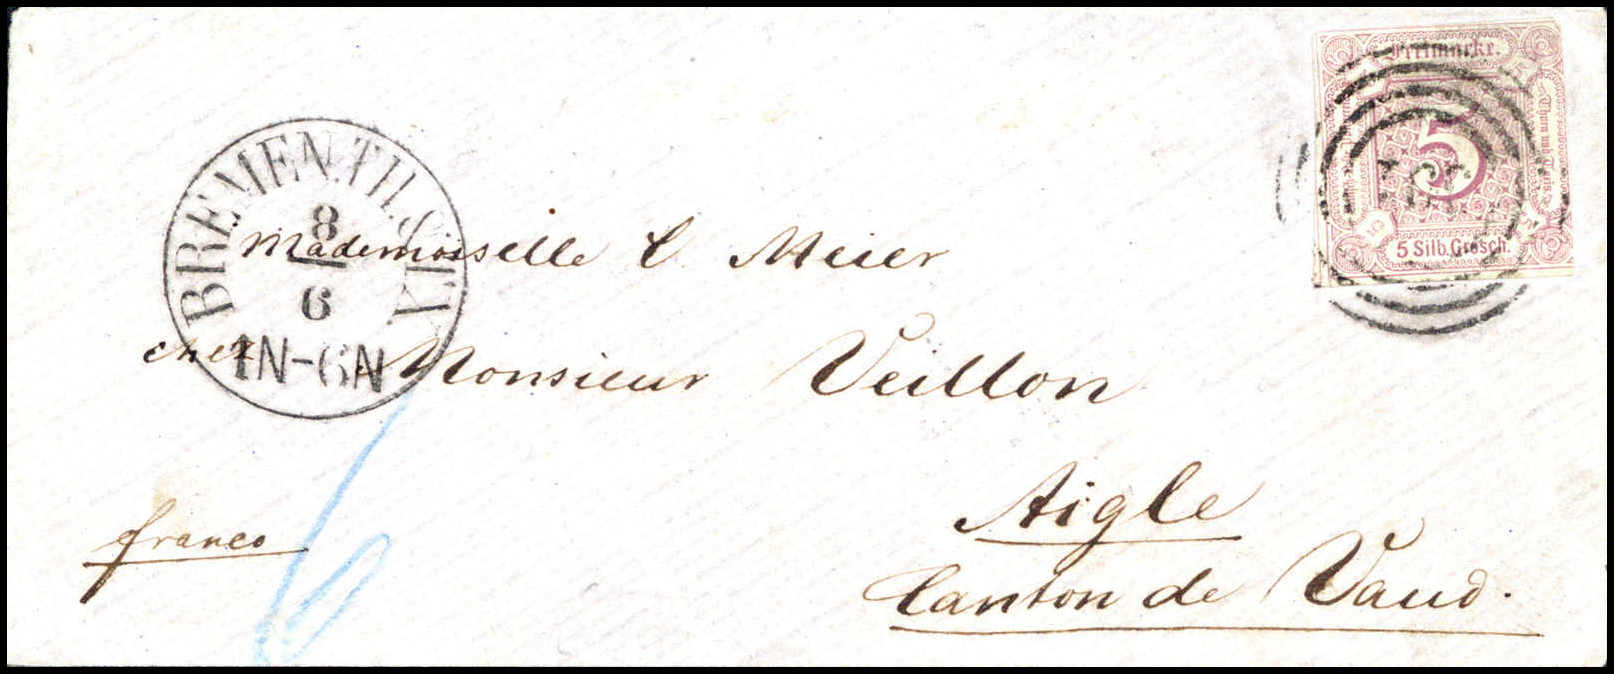 Freimarke.
Thurn und Taxis
5
5 Silb. Grosch.
BREMEN.TH.&TX.
8
6
1N-6N
Mademoiselle C. Meier
chez Monsieur Veillon
Aigle
Canton de Vaud.
franco
6